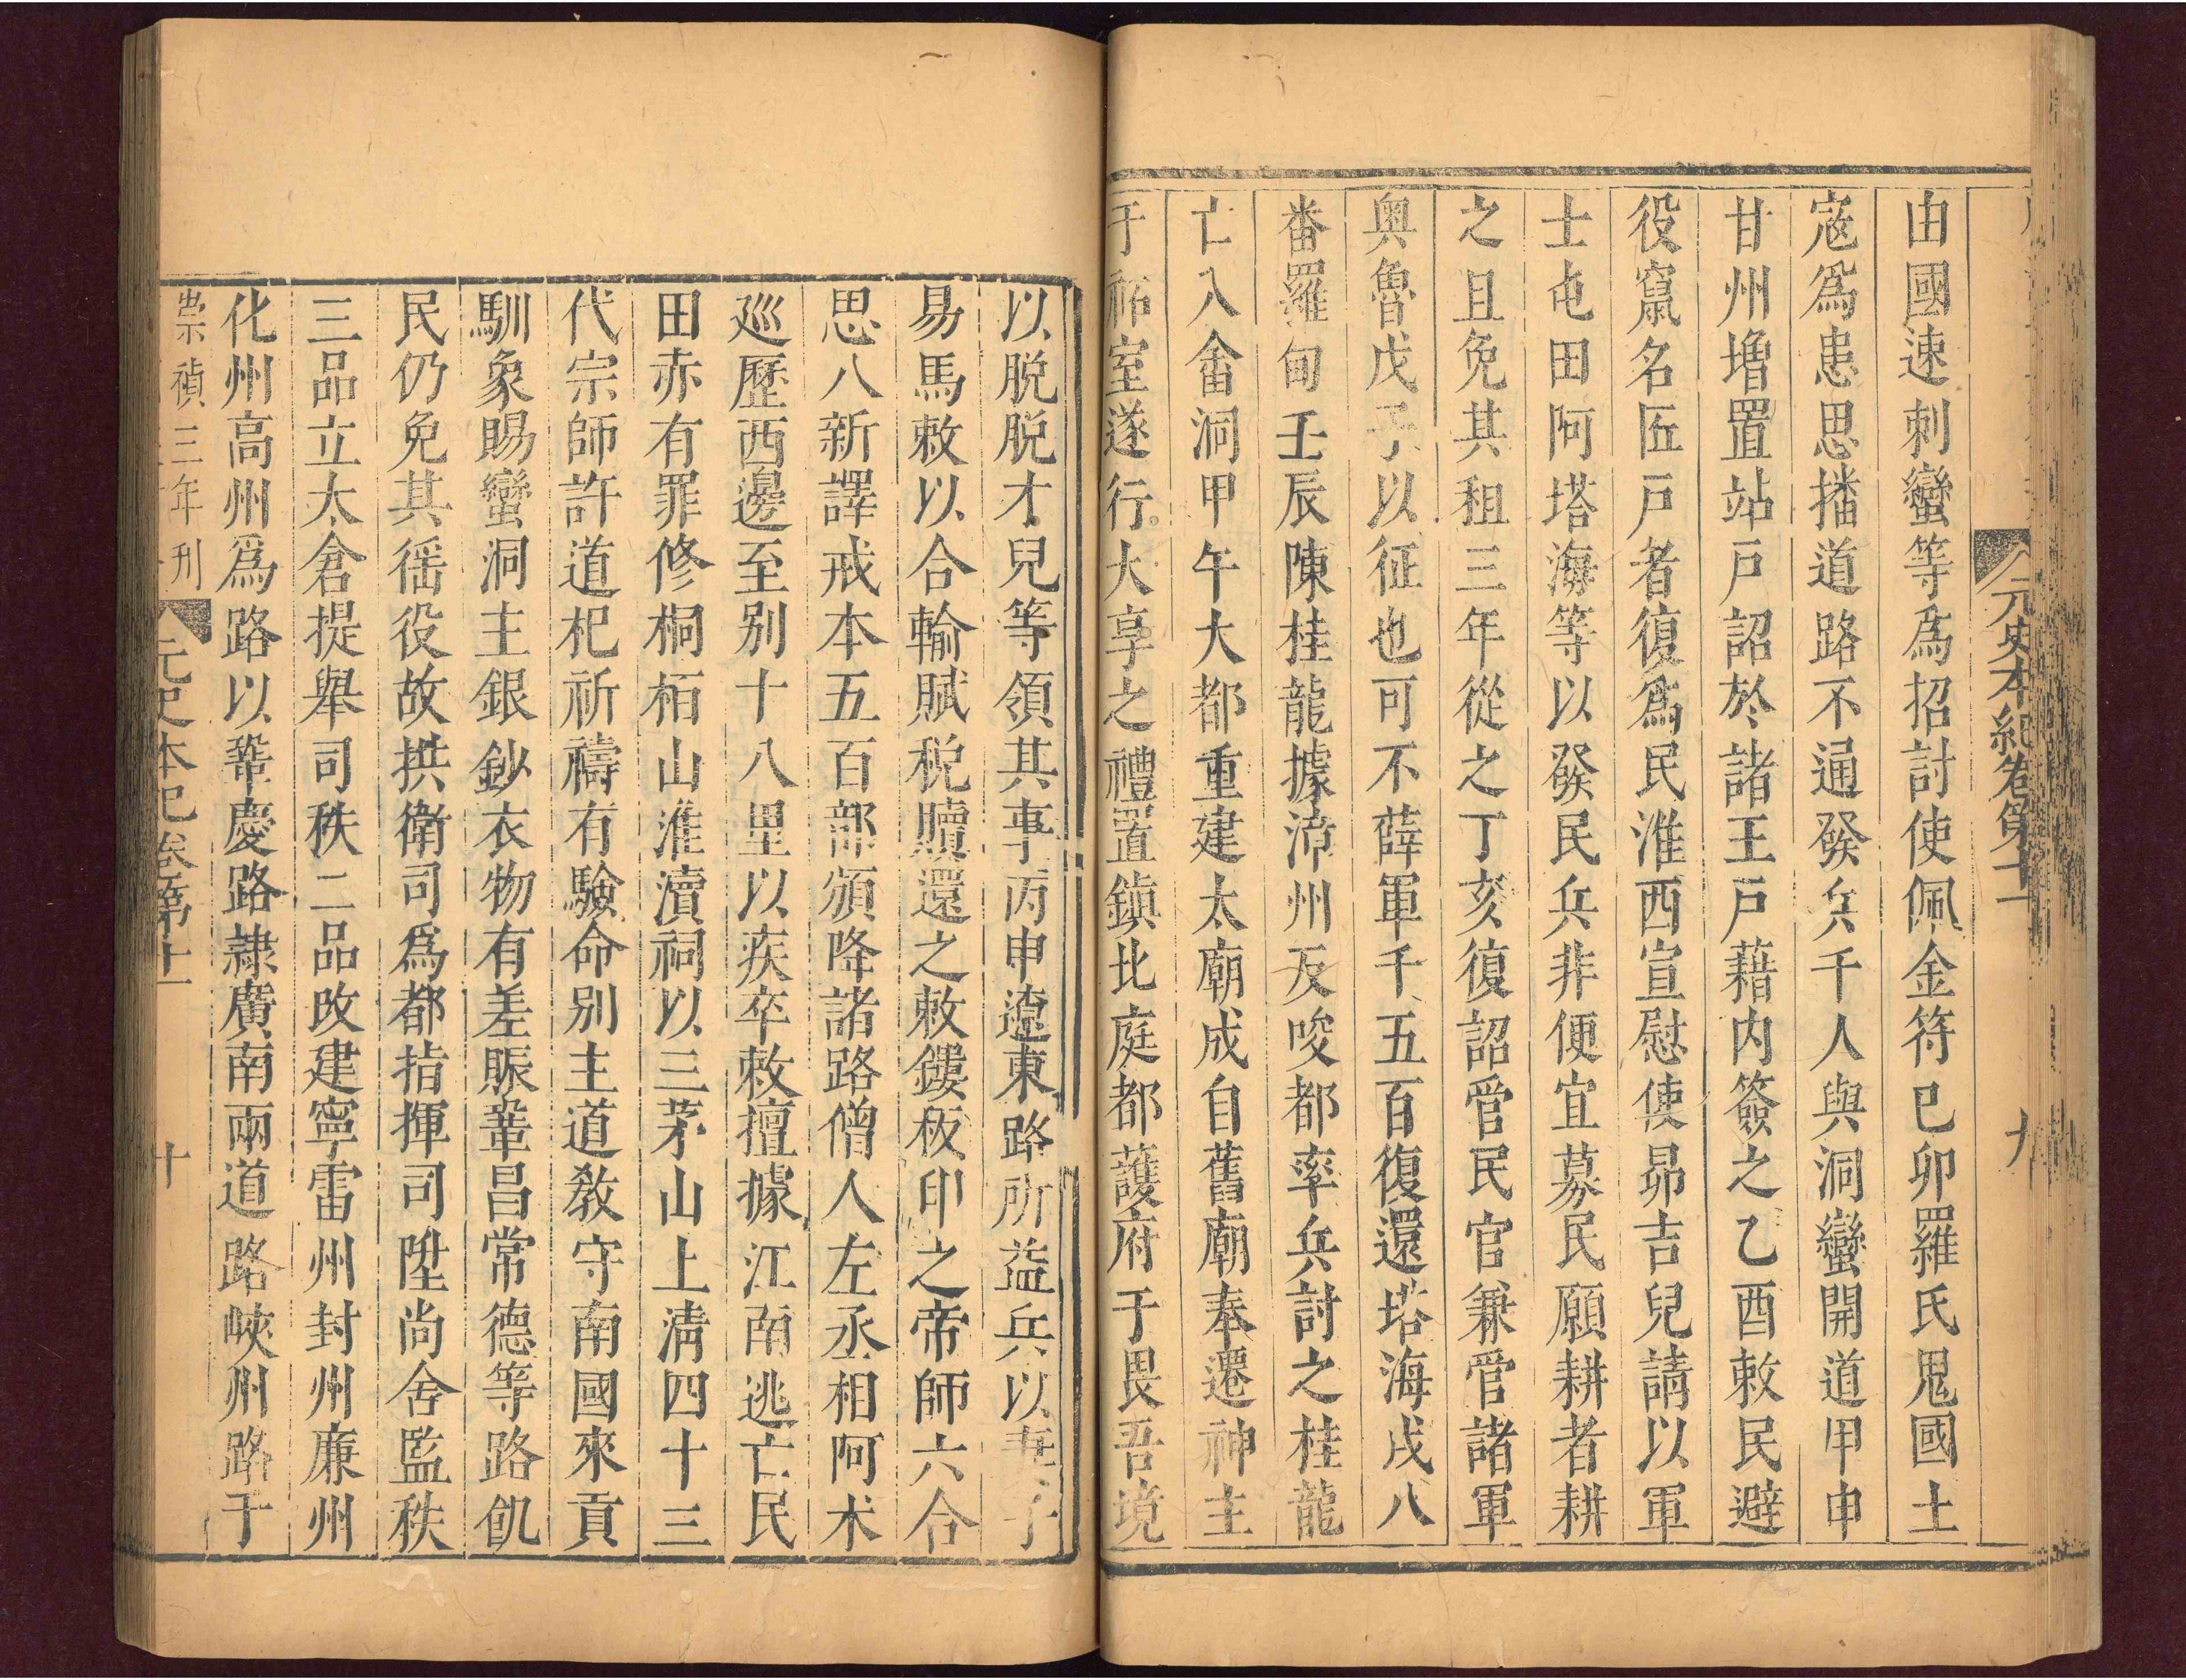 元史本紀卷第十一
九
由國速刺蠻等爲招討使佩金符己卯羅氏鬼國土
寇爲患思播道路不通發兵千人與洞蠻開道甲申
甘州增置站戶詔於諸王戶藉内簽之乙酉敕民避
役竄名匠戶者復爲民淮西宣慰使昴吉兒請以軍
士屯田阿塔海等以發民兵非便宜募民願耕者耕
之且免其租三年從之丁亥復詔管民官兼管諸軍
奥魯戊子以征也可不薛軍千五百復還塔海戍八
番羅甸壬辰陳桂龍據漳州反唆都率兵討之桂龍
亡入畲洞甲午大都重建太廟成自舊廟奉遷神主
于祏室遂行大享之禮置鎮北庭都護府于畏吾境
以脫脫木兒等領其事丙申遼東路所益兵以妻子
易馬敕以合輸賦稅贖還之敕鏤板印之帝師六合
思八新譯戒本五百部頒降諸路僧人左丞相阿术
廵歷西邊至别十八里以疾卒敕擅據江南逃亡民
田赤有罪修桐栢山淮瀆祠以三茅山上清四十三
代宗師許道杞祈禱有驗命别主道教守南國來貢
馴象賜蠻洞主銀鈔衣物有差賑鞏昌常德等路飢
民仍免其徭役故拱衛司爲都指揮司陞尚舍監秩
三品立太倉提舉司秩二品改建寧雷州封州廉州
化州高州爲路以鞏慶路隷廣南兩道路峽州路于
崇禎三年刊
元史本紀卷第十一
十